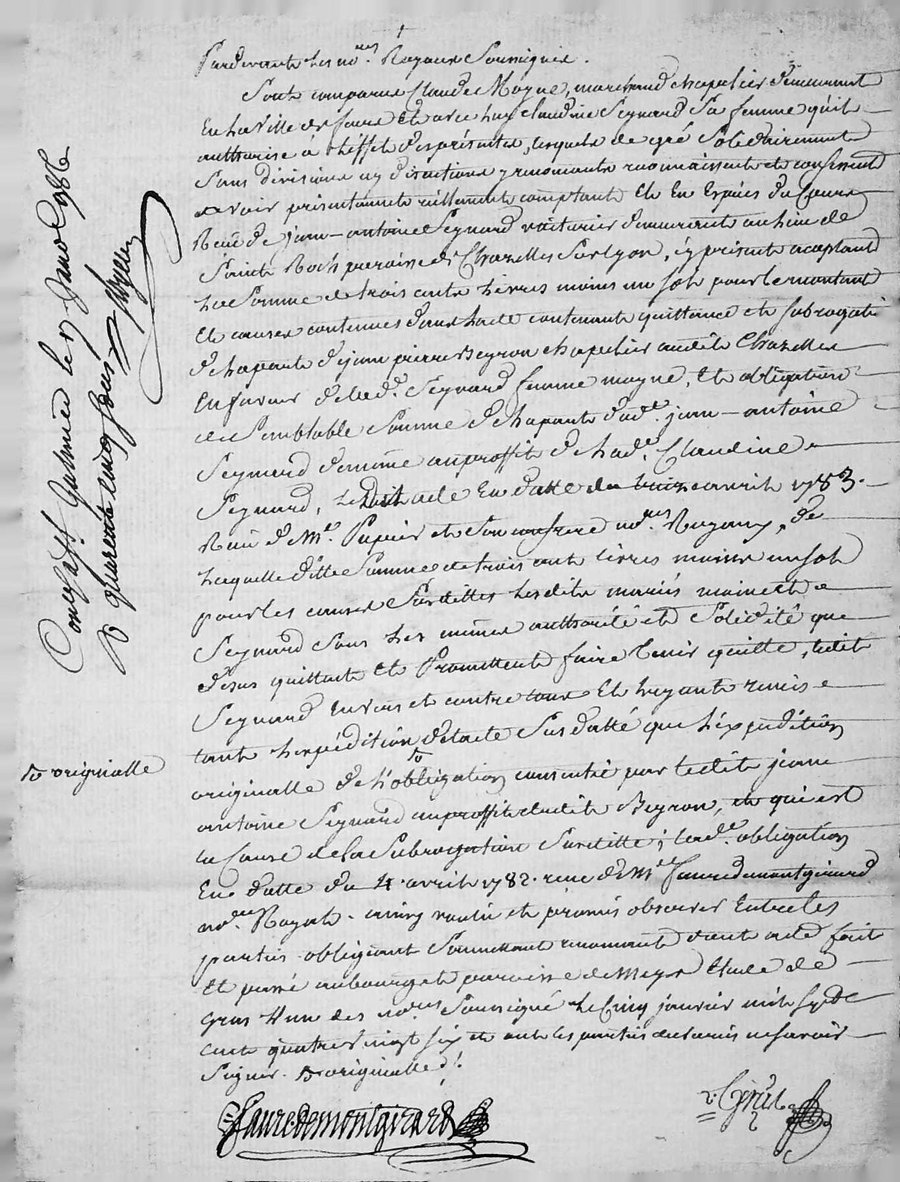 Pardevant les no.res Royaux Soussignés.
Sont comparus Claude Moyne, marchand chapelier demeurant
En la ville de faure Et avec luy claudine Seynard Sa femme qu'il
authorise a l'effet des présentes, lesquels de gré Solidairement
Sans division ny discution y renonçants reconnaissent et confessent
avoir présentement réellement comptant Et En Espèces du Cours
Reçû de jean-antoine Seynard voiturier demeurant au lieu de
Saint Roch paroisse de Chazelles Sur lyon, cy présent acceptant
La Somme de trois cents Livres moins un sol pour le montant
Et causes contenues dans l'acte contenant quittance et subrogat.
de la part de jean pierre Beyron chapelier audit Chazelles
En faveur de lad. Seynard femme moyne, Et obligation
de Semblable Somme de la part dud.t jean-antoine
Seynard demême au proffit de lad.e Claudine
Seynard, Ledit acte En datte du trois avril 1783.
Reçu de M.e Pupier et Son confrere no.res Royaux, de
Laquelle ditte Somme de trois cent livres moins un sol
pour les causes Susdittes Lesdits mariés moine et
Seynard Sous Les mêmes authorité et Solidité que
dessus quittent et Promettent faire tenir quitte, ledit
Seynard envers et contre tous Et luy ont remis
tant L'expédition de l'acte Susdatté que L'expédition
originalle de L'obligation consentie par ledit jean
antoine Seynard au proffit dudit Beyron, et qui est
la Cause de la Subrogation Susditte; lad.e obligation
En datte du 4 avril 1782. reçue de M.e faure demontgirard
no.re Royal. ainsy voulu et promis observer Entre les
parties obligeant Soumettant renonçant dont acte fait
Et passé au bourg et paroisse de Meys Etude de
Gras l'un des no.res Soussigné Le Cinq janvier mil Sept
Cent quatre vingt Six et ont les parties declaré ne savoir
Signer. originalle
Faure demontgirard
Con.lé à St Galmier le 17 janv. 1786
R quarente cinq sous
originalle